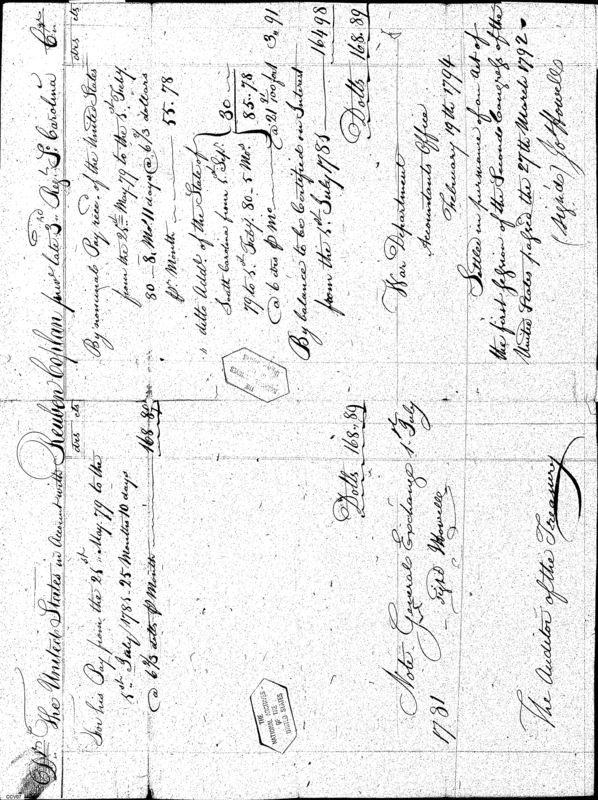 Dr. The United States in Account with Reuben Copham priv. late 3rd Reg. S. Carolina Cr.
drs cts
For his Pay from the 25th May 79 to the
5th July 1781 25 Months 10 days
@ 6 2/3 dolls p Month 168.89
Dolls 168.89
Note General Exchange 1st July
1781
Sign'd Howell
The Auditor of the Treasury
drs cts
By nominal Pay rece. of the United States
from the 25th May 79 to the 5th Feby.
80 - 8 Mo 11 days @ 6 2/3 dollars
pr Month 55.78
ditto Addl. of the State of
South Carolina from 5. Sep.
79 to 5th Feby. 80 - 5 Mo.
@ 6 drs p Mo 30
85.78
@ 21 for 1 3.. 91
By balance to be Certified on Interest
from the 5th July 1781 164 98
Dolls 168.89
War Department
Accountants Office
February 19th 1794
Settled in pursuance of an Act of
the first Session of the Second Congress of the
United States passed the 27th March 1792.
(Sign'd Jo Howell
THE
NATIONAL ARCHIVES
OF THE
UNITED STATES